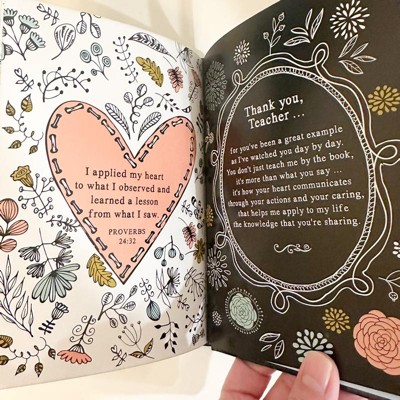 I applied my heart
to what I observed and
learned a lesson
from what I saw.
PROVERBS
24:32
Thank you,
Teacher ...
for you've been a great example
as I've watched you day by day.
You don't just teach me by the book,
it's more than what you say ...
it's how your heart communicates
through your actions and your caring,
that helps me apply to my life
the knowledge that you're sharing.